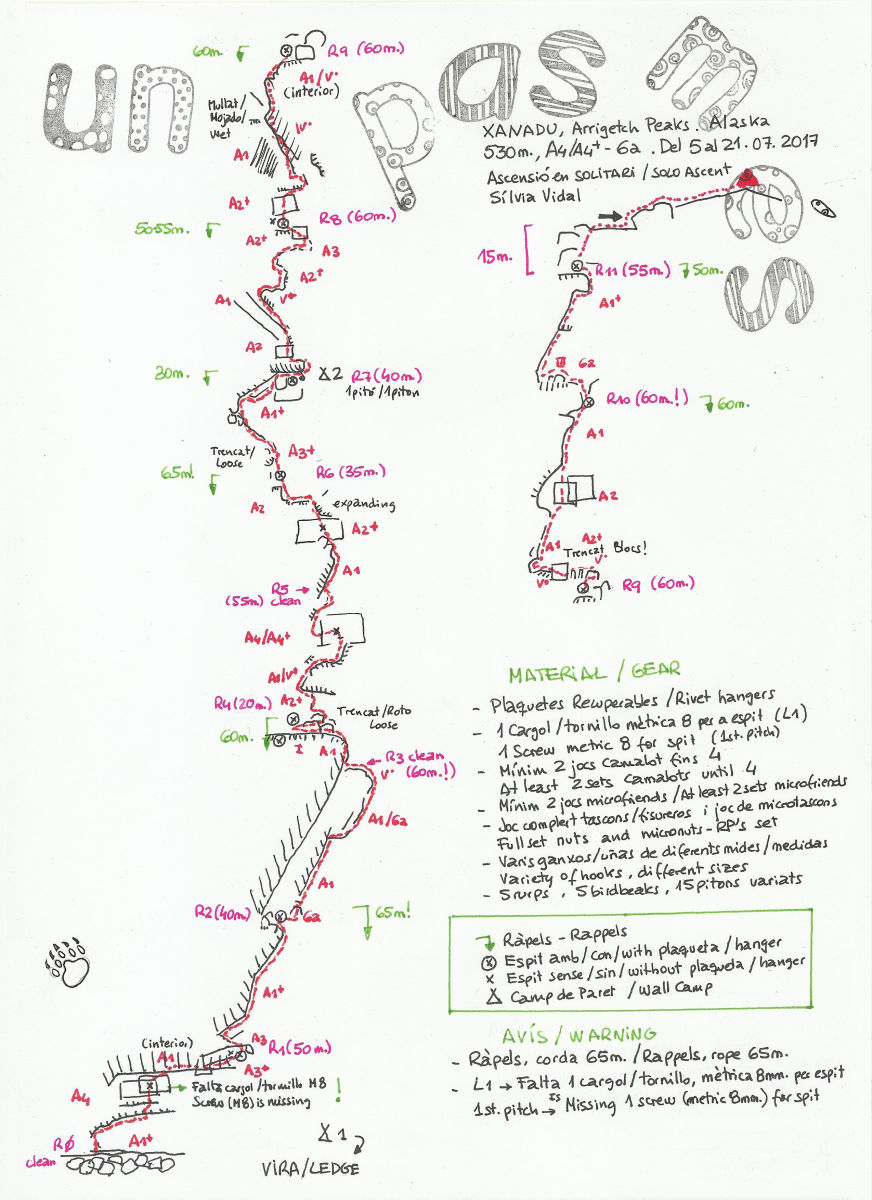 un pas més
XANADU, Arrigetch Peaks. Alaska
530m., A4/A4+ - 6a. Del 5 al 21.07.2017
Ascensió en SOLITARI / SOLO ASCENT
Sílvia Vidal
60m.
R9 (60m.)
A1/V°
(interior)
Mullat/
Mojado/
wet
IV°
A1
A2+
R8 (60m.)
50-55m.
A2+
A3
A2+
V°
A1
A2
30m.
2
R7 (40m.)
1 pitó / 1 piton
A1+
Trencat/
Loose
A3+
65m!
R6 (35m.)
A2
expanding
A2+
A1
R5
(55m) clean
A4/A4+
A1/V°
A2+
R4 (20m.)
Trencat/Roto
Loose
60m.
I
A1
R3 clean
(60m.!)
V°
A1/6a
A1
R2 (40m)
6a
65m!
A1+
A3
R1 (50m.)
(interior)
A1
A3+
A4
Falta cargol / tornillo M8
Screw (M8) is missing
!
RØ
clean
A1+
1
VIRA/LEDGE
15m.
R11 (55m.)
50m.
A1+
III
6a
R10 (60m.!)
60m.
A1
A2
A1
A2+
Trencat Blocs!
V°
V°
R9 (60m.)
MATERIAL / GEAR
- Plaquetes Recuperables / Rivet hangers
- 1 Cargol / tornillo mètrica 8 per a espit (L1)
1 Screw metric 8 for spit (1st. pitch)
- Mínim 2 jocs camalot fins 4
At least 2 sets camalots until 4
- Mínim 2 jocs microfriends / At least 2 sets microfriends
- Joc complert tascons / fisureros i joc de microtascons
Full set nuts and micronuts - RP's set
- Varis ganxos / uñas de diferents mides / medidas
Variety of hooks, different sizes
- 5 rurps, 5 birdbeaks, 15 pitons variats
Ràpels - Rappels
Espit amb / con / with plaqueta / hanger
x Espit sense / sin / without plaqueta / hanger
Camp de Paret / Wall Camp
AVÍS / WARNING
- Ràpels, corda 65m. / Rappels, rope 65m.
- L1 → Falta 1 cargol / tornillo, mètrica 8mm. per espit
1st. pitch → Is Missing 1 screw (metric 8mm.) for spit